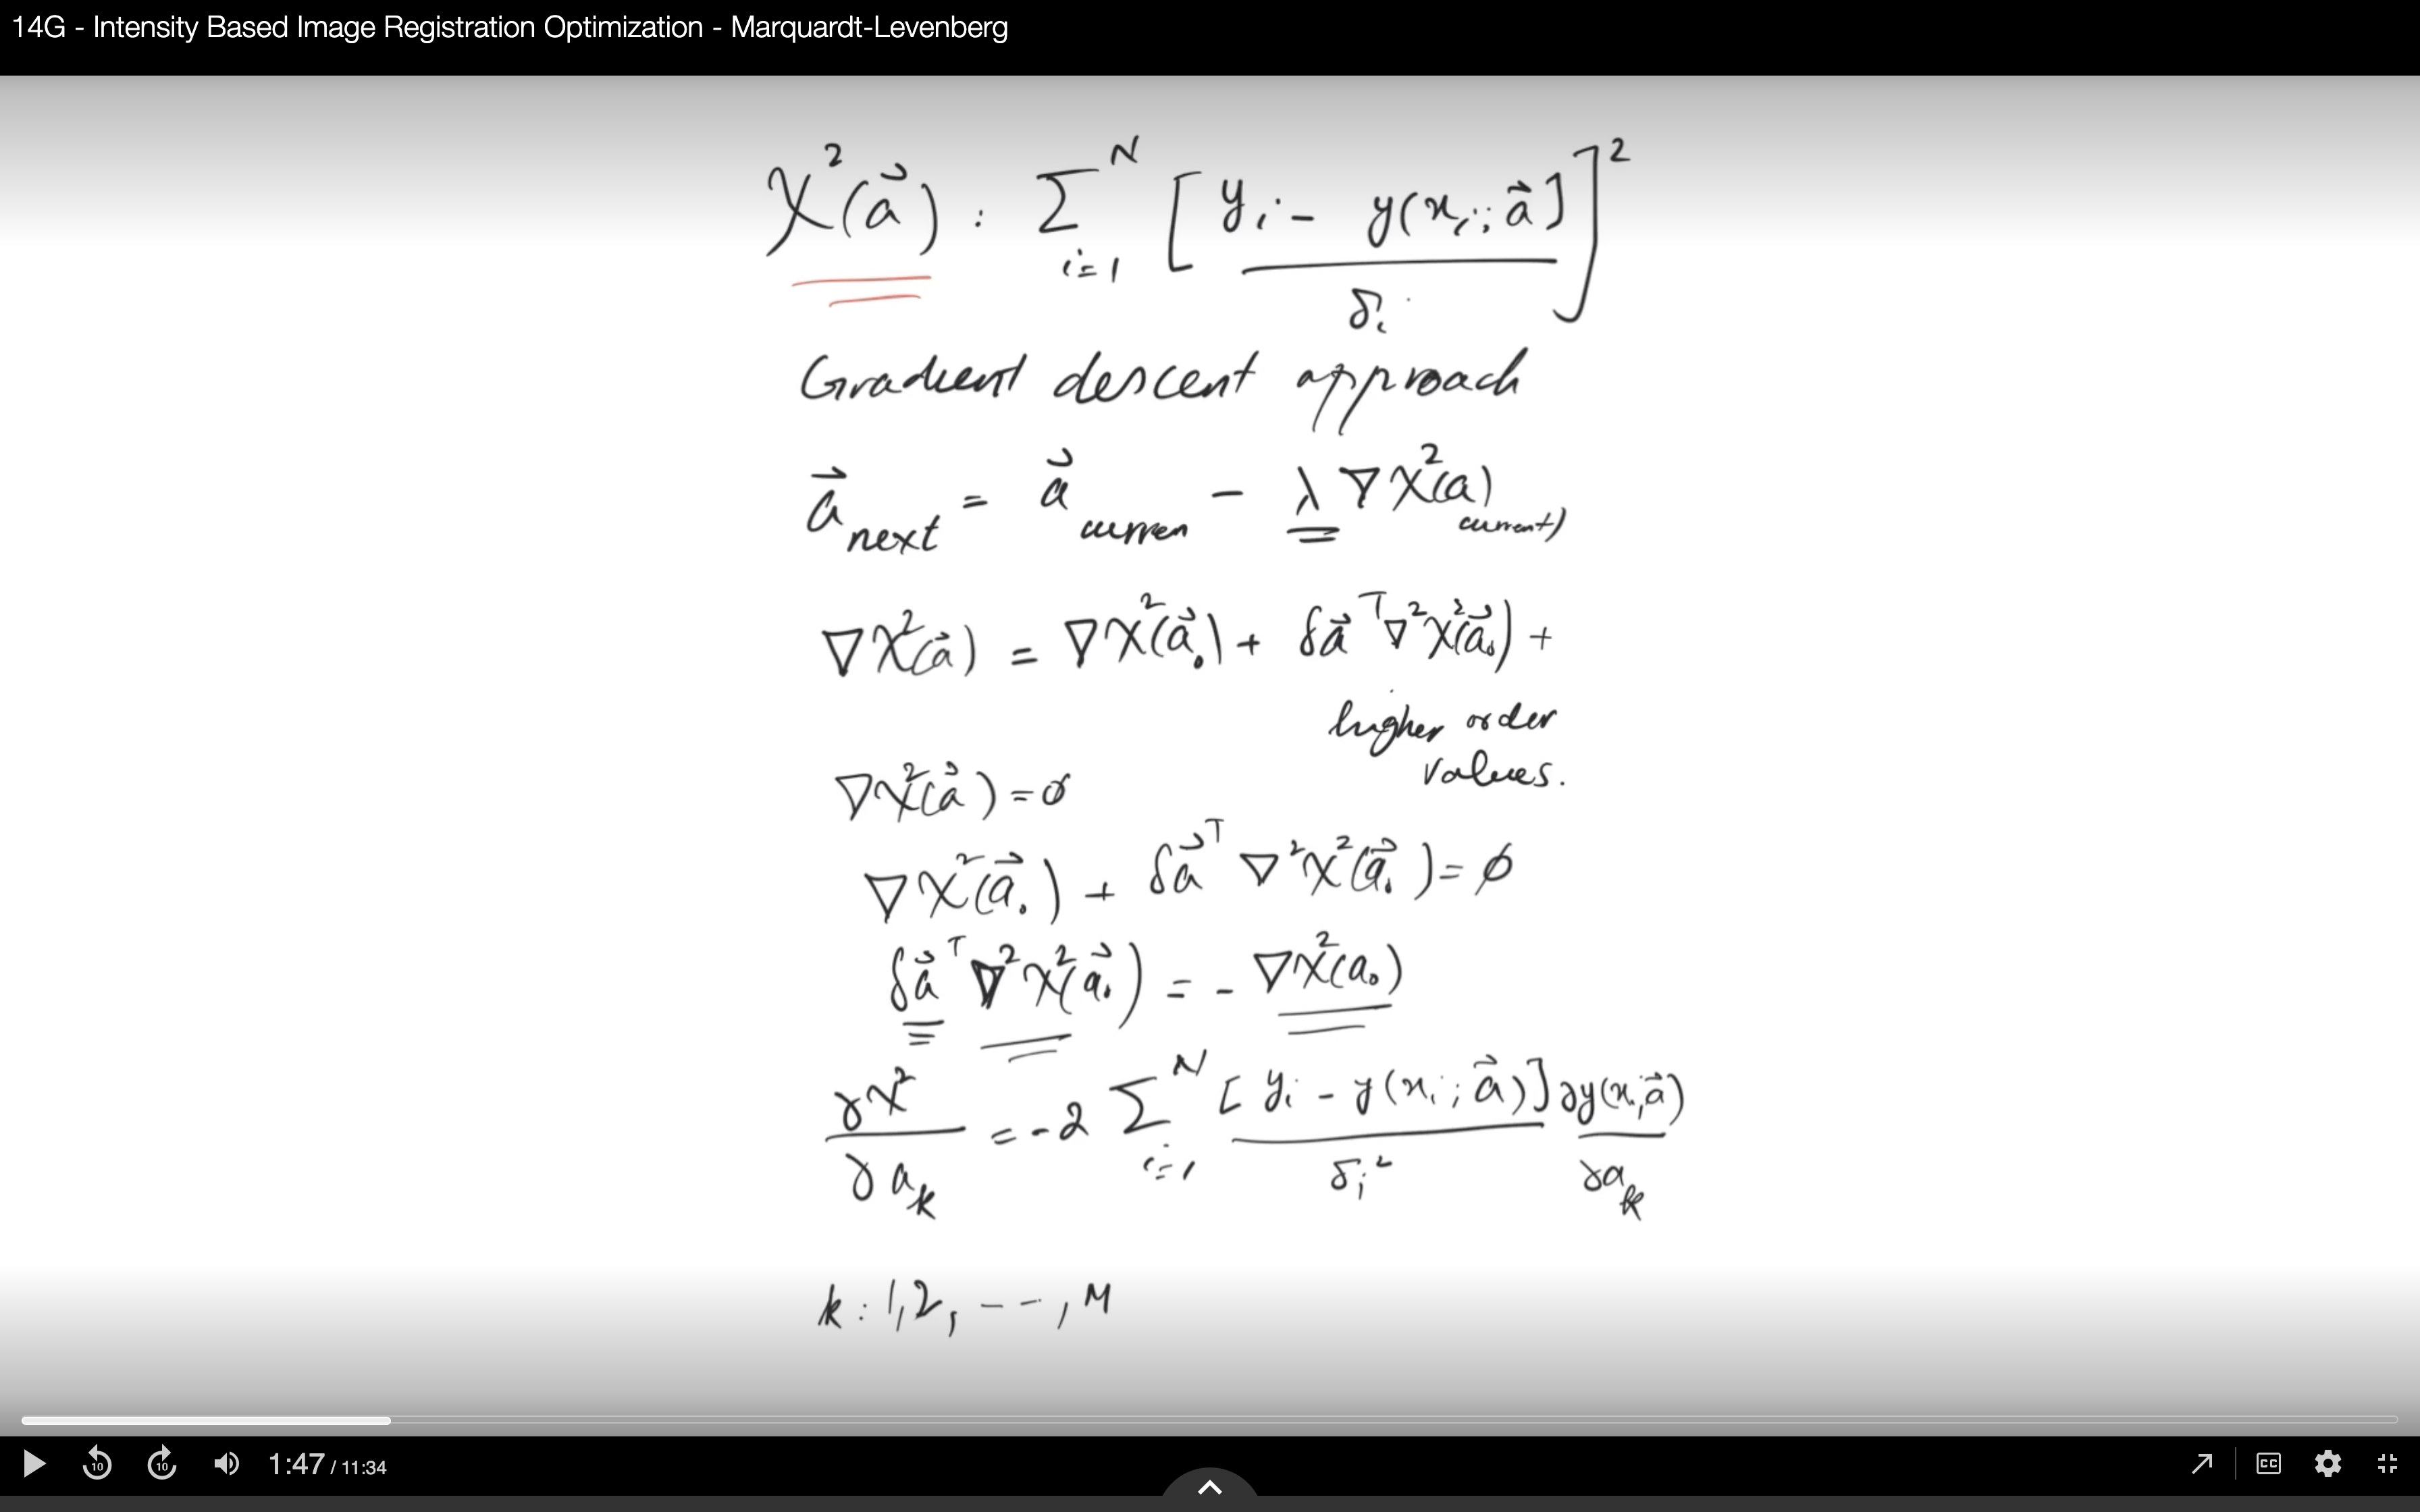 14G - Intensity Based Image Registration Optimization - Marquardt-Levenberg
χ²(a⃗) : Σ_{i=1}^{N} [ (y_i - y(x_i; a⃗]) / δ_i ]²
Gradient descent approach
a⃗_next = a⃗_curren - λ ∇χ²(a)_current)
∇χ²(a⃗) = ∇χ²(a⃗₀) + δa⃗ᵀ ∇²χ²(a⃗₀) +
higher order
values.
∇χ²(a⃗) = 0
∇χ²(a⃗₀) + δa⃗ᵀ ∇²χ²(a⃗₀) = 0
δa⃗ᵀ ∇²χ²(a⃗₀) = - ∇χ²(a₀)
∂χ²/∂a_k = -2 Σ_{i=1}^{N} [y_i - y(x_i; a⃗)] / δ_i² ∂y(x_i, a⃗)/∂a_k
k : 1, 2, - - -, M
10 10 1:47 / 11:34 CC